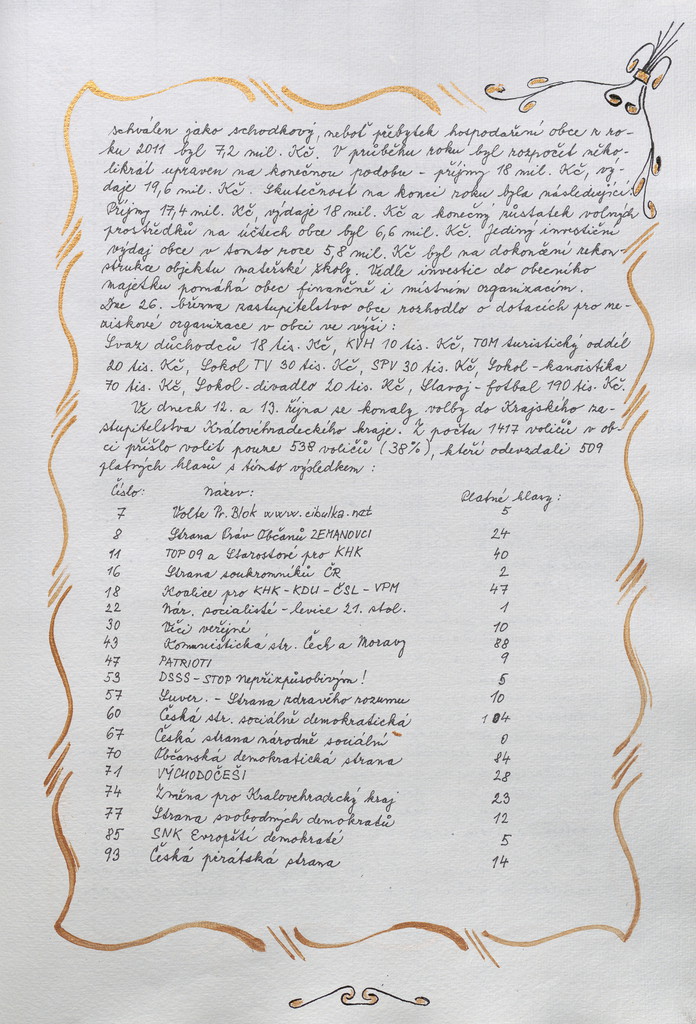 schválen jako schodkový, neboť přebytek hospodaření obce z ro-
ku 2011 byl 7,2 mil. Kč. V průběhu roku byl rozpočet něko-
likrát upraven na konečnou podobu - příjmy 18 mil. Kč, vý-
daje 19,6 mil. Kč. Skutečnost na konci roku byla následující:
Příjmy 17,4 mil. Kč, výdaje 18 mil. Kč a konečný zůstatek volných
prostředků na účtech obce byl 6,6 mil. Kč. Jediný investiční
výdaj obce v tomto roce 5,8 mil. Kč byl na dokončení rekon-
strukce objektu mateřské školy. Vedle investic do obecního
majetku pomáhá obec finančně i místním organizacím.
Dne 26. března zastupitelstvo obce rozhodlo o dotacích pro ne-
ziskové organizace v obci ve výši:
Svaz důchodců 18 tis. Kč, KVH 10 tis. Kč, TOM turistický oddíl
20 tis. Kč, Sokol TV 30 tis. Kč, SPV 30 tis. Kč, Sokol - kanoistika
70 tis. Kč, Sokol - divadlo 20 tis. Kč, Slavoj - fotbal 190 tis. Kč.
Ve dnech 12. a 13. října se konaly volby do Krajského za-
stupitelstva Královéhradeckého kraje. Z počtu 1417 voličů v ob-
ci přišlo volit pouze 538 voličů (38%), kteří odevzdali 509
platných hlasů s tímto výsledkem:
Číslo: Název: Platné hlasy:
7 Volte Pr. Blok www.cibulka.net 5
8 Strana Práv Občanů ZEMANOVCI 24
11 TOP 09 a Starostové pro KHK 40
16 Strana soukromníků ČR 2
18 Koalice pro KHK - KDU - ČSL - VPM 47
22 Nár. socialisté - levice 21. stol. 1
30 Věci veřejné 10
43 Komunistická str. Čech a Moravy 88
47 PATRIOTI 9
53 DSSS - STOP nepřizpůsobivým! 5
57 Suver. - Strana zdravého rozumu 10
60 Česká str. sociálně demokratická 104
67 Česká strana národně sociální 0
70 Občanská demokratická strana 84
71 VÝCHODOČEŠI 28
74 Změna pro Kralovehradecký kraj 23
77 Strana svobodných demokratů 12
85 SNK Evropští demokraté 5
93 Česká pirátská strana 14